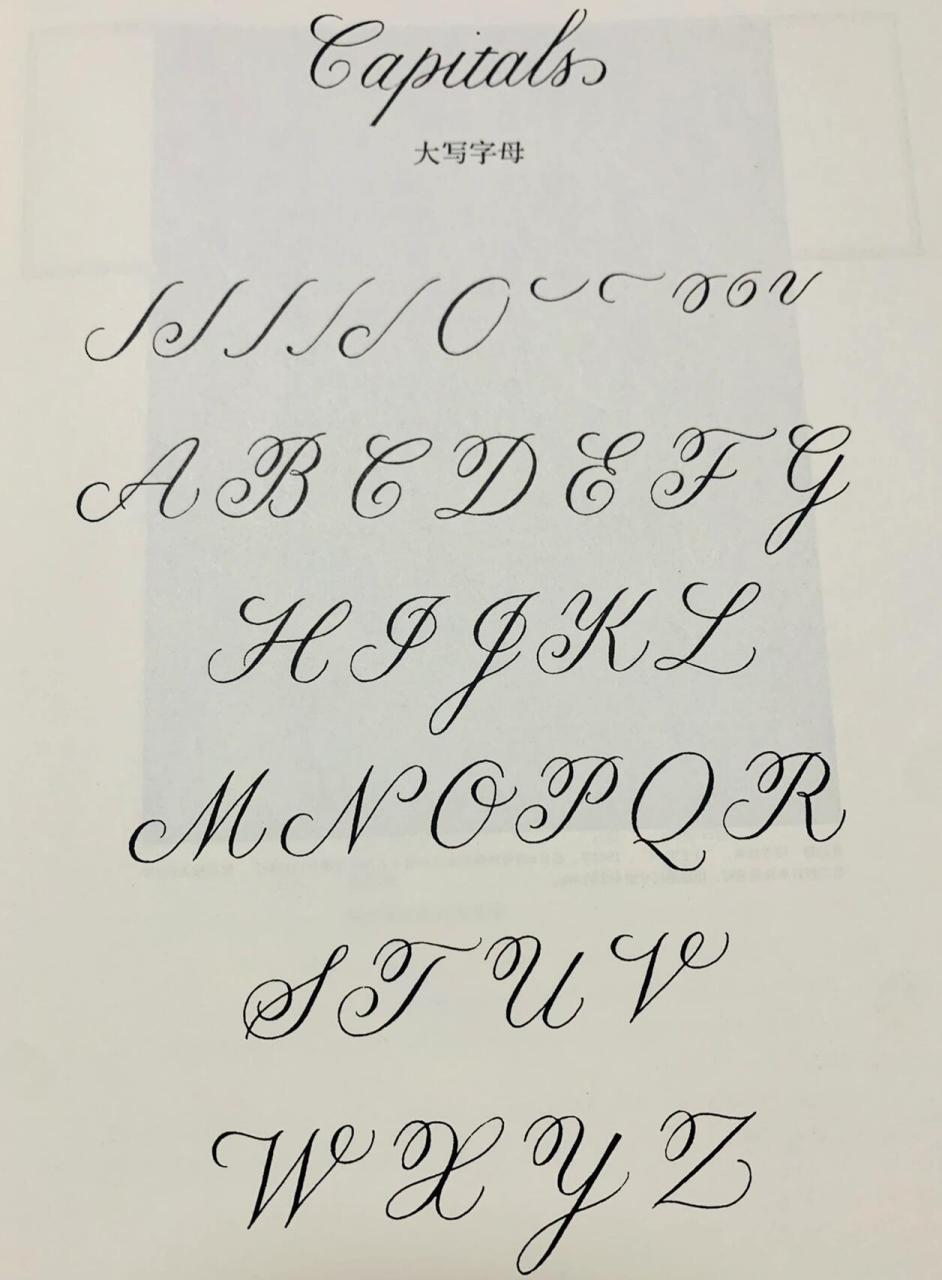 Capitals
大写字母
A B C D E F G
H I J K L
M N O P Q R
S T U V
W X Y Z